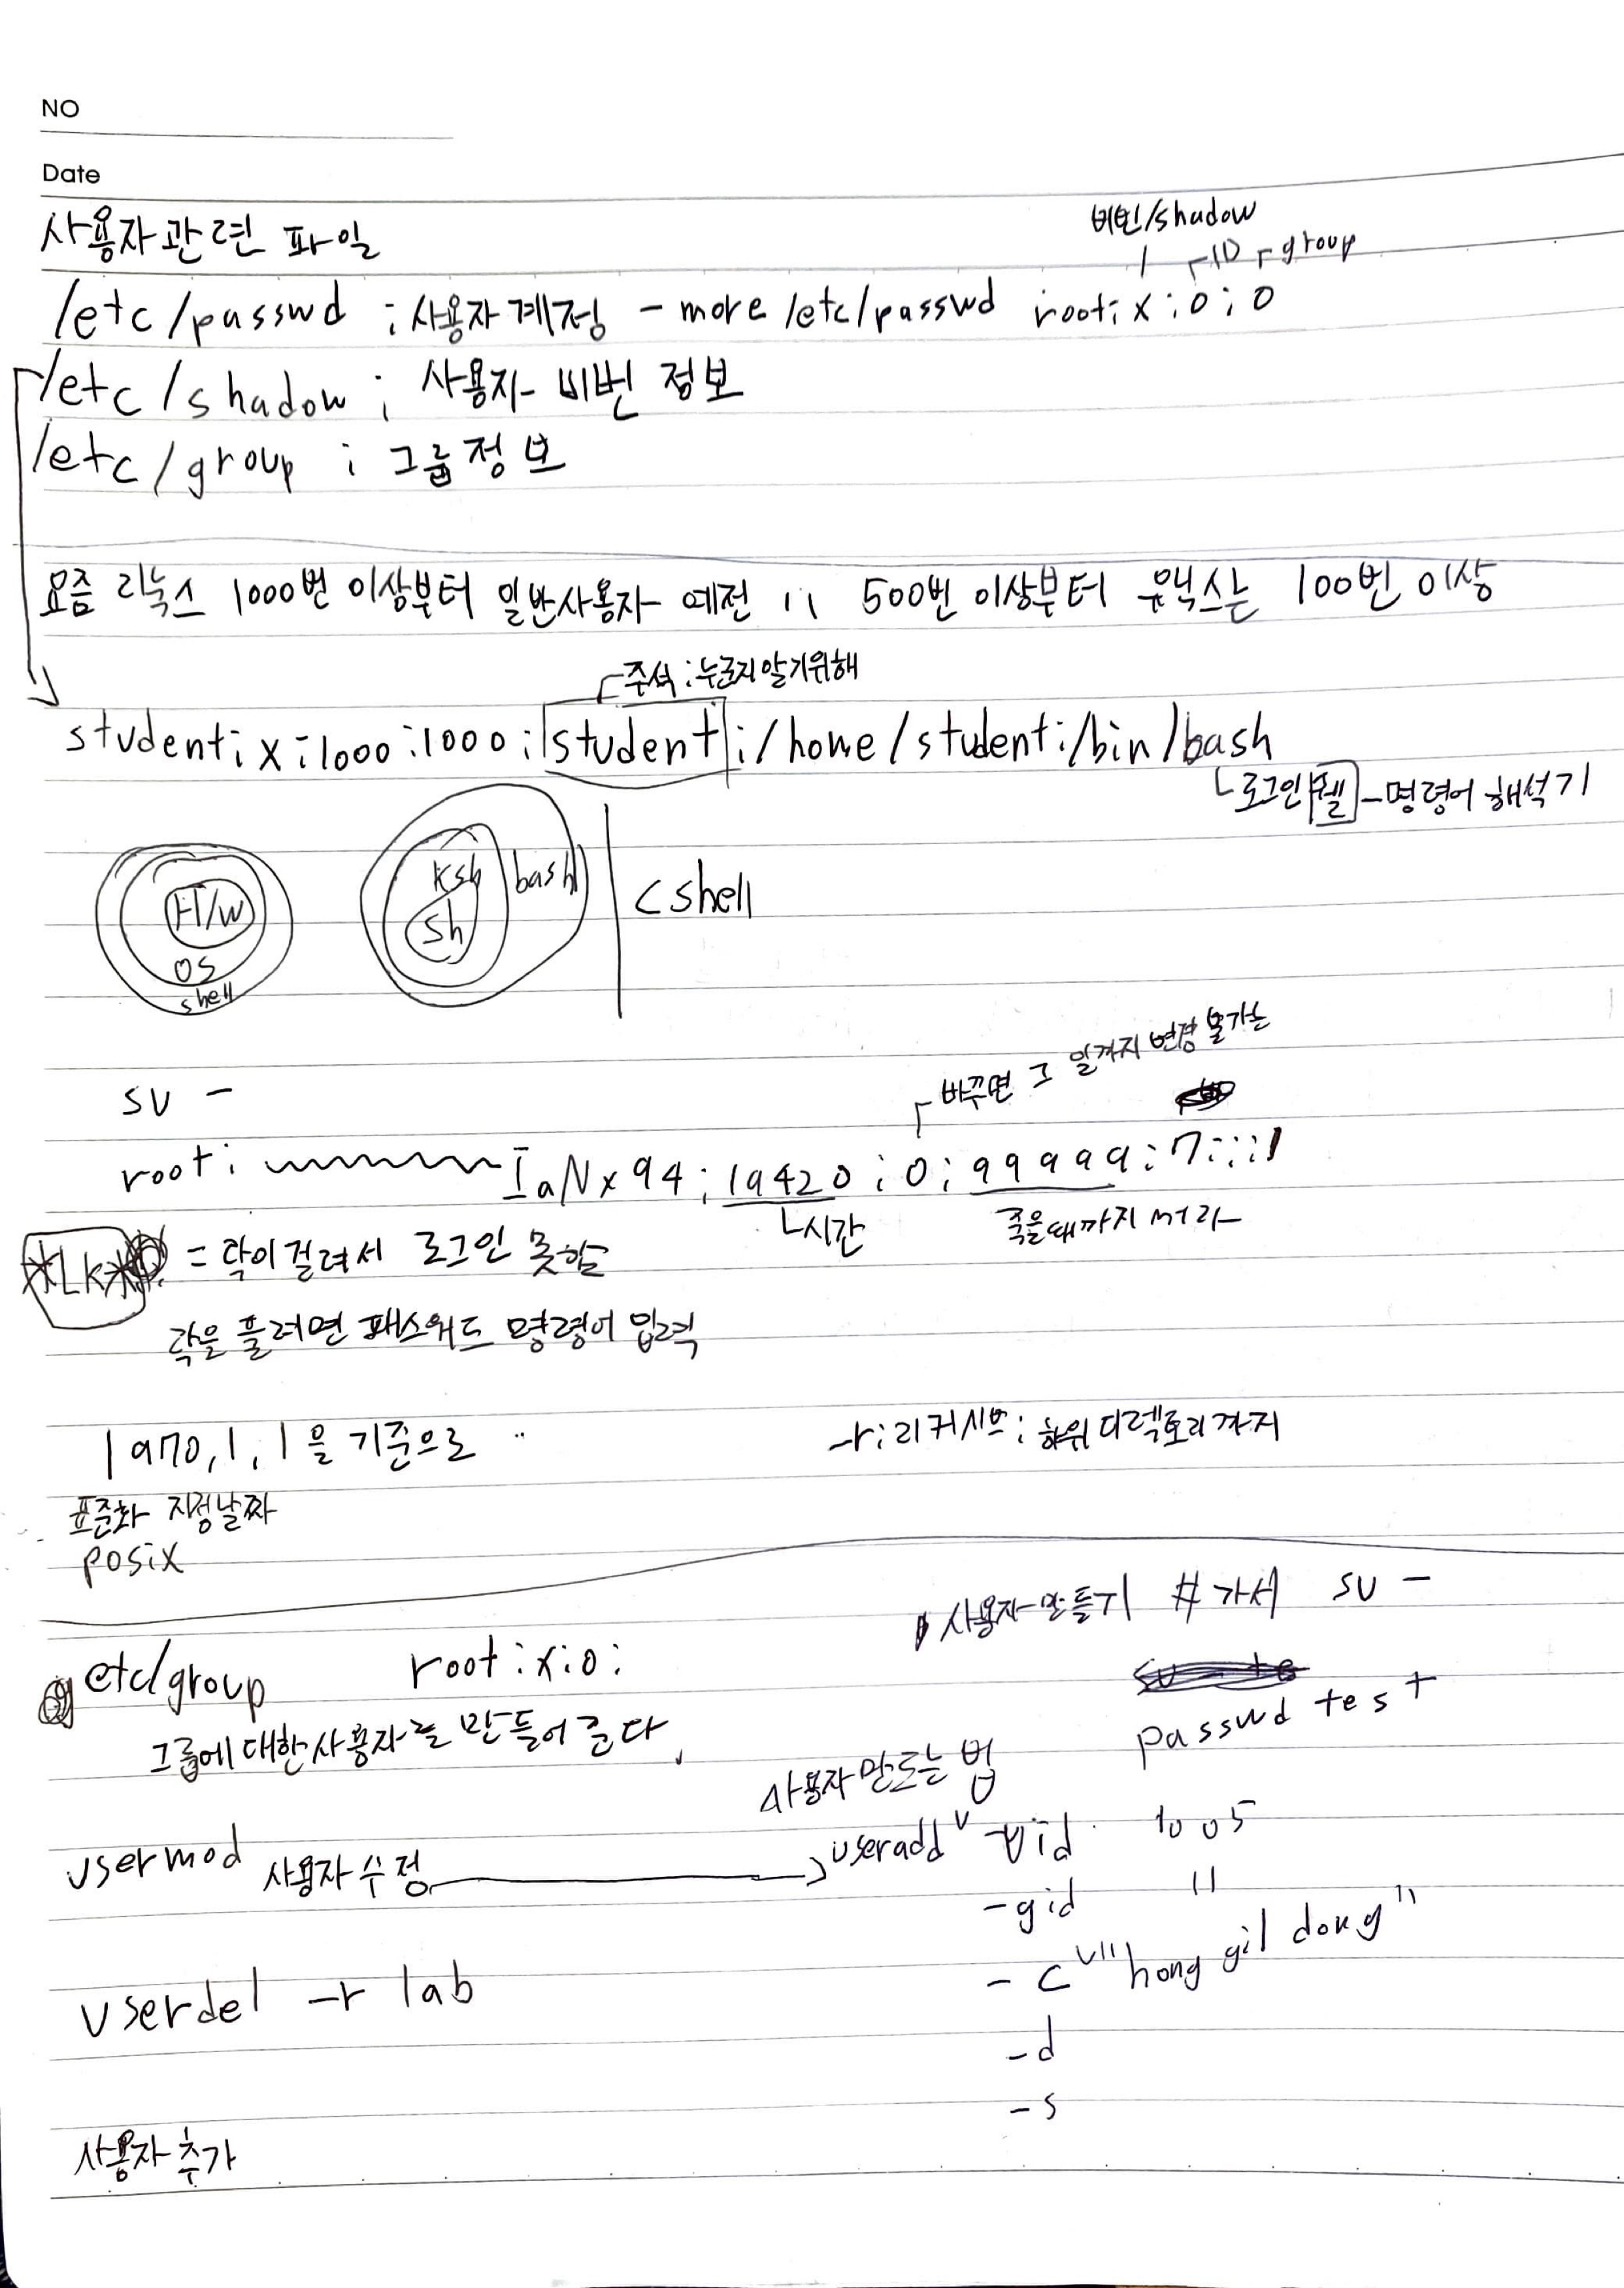 NO
Date
사용자관련 파일
비번/shadow
ID group
/etc/passwd : 사용자 계정 - more /etc/passwd root: x : 0 : 0
/etc/shadow : 사용자 비번 정보
/etc/group : 그룹정보
요즘 리눅스 1000번 이상부터 일반사용자 예전 〃 500번 이상부터 유닉스는 100번 이상
주석 : 누군지알기위해
student: x : 1000 : 1000 : student : /home/student : /bin/bash
로그인 쉘 - 명령어 해석기
H/W
OS
shell
ksh
sh
bash
C shell
바꾸면 그 일까지 변경 불가능
su -
root : IaNx94 : 19420 : 0 : 99999 : 7 : : :
시간
죽을때까지 써라
*LK* = 락이걸려서 로그인 못함
락을 풀려면 패스워드 명령어 입력
1970, 1, 1을 기준으로
-r : 리커시브 : 하위 디렉토리까지
표준화 지정날짜
posix
사용자만들기 #가서 su -
etc/group root : x : 0 :
passwd test
그룹에대한사용자를 만들어 준다.
사용자 만드는 법
usermod 사용자 수정
useradd -uid 1005
-gid 〃
-c "hong gil dong"
userdel -r lab
-d
-s
사용자 추가